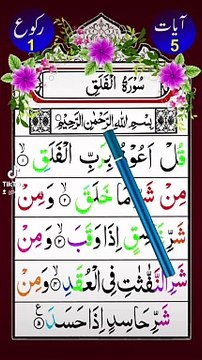 آيات
5
ركوع
1
سُوْرَةُ الْفَلَقِ
بِسْمِ اللهِ الرَّحْمٰنِ الرَّحِيْمِ
قُلْ اَعُوْذُ بِرَبِّ الْفَلَقِ ۱
مِنْ شَرِّ مَا خَلَقَ ۲ وَمِنْ
شَرِّ غَاسِقٍ اِذَا وَقَبَ ۳ وَمِنْ
شَرِّ النَّفّٰثٰتِ فِى الْعُقَدِ ۴ وَمِنْ
شَرِّ حَاسِدٍ اِذَا حَسَدَ ۵